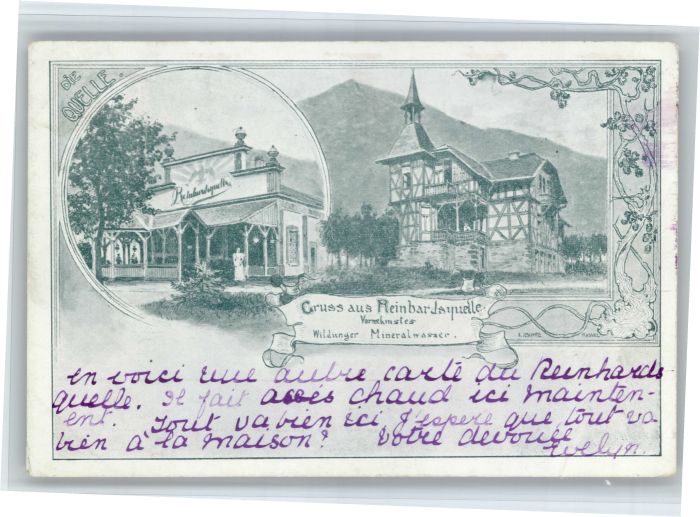 die
QUELLE.
Reinhardsquelle
Gruss aus Reinhardsquelle
Vornehmstes
Wildunger Mineralwasser.
en voici une autre carte du Reinhards-
quelle. Il fait asses chaud ici mainten-
ent. Tout va bien ici J'espere que tout va
bien à la maison? Votre devouée
Evelyn.